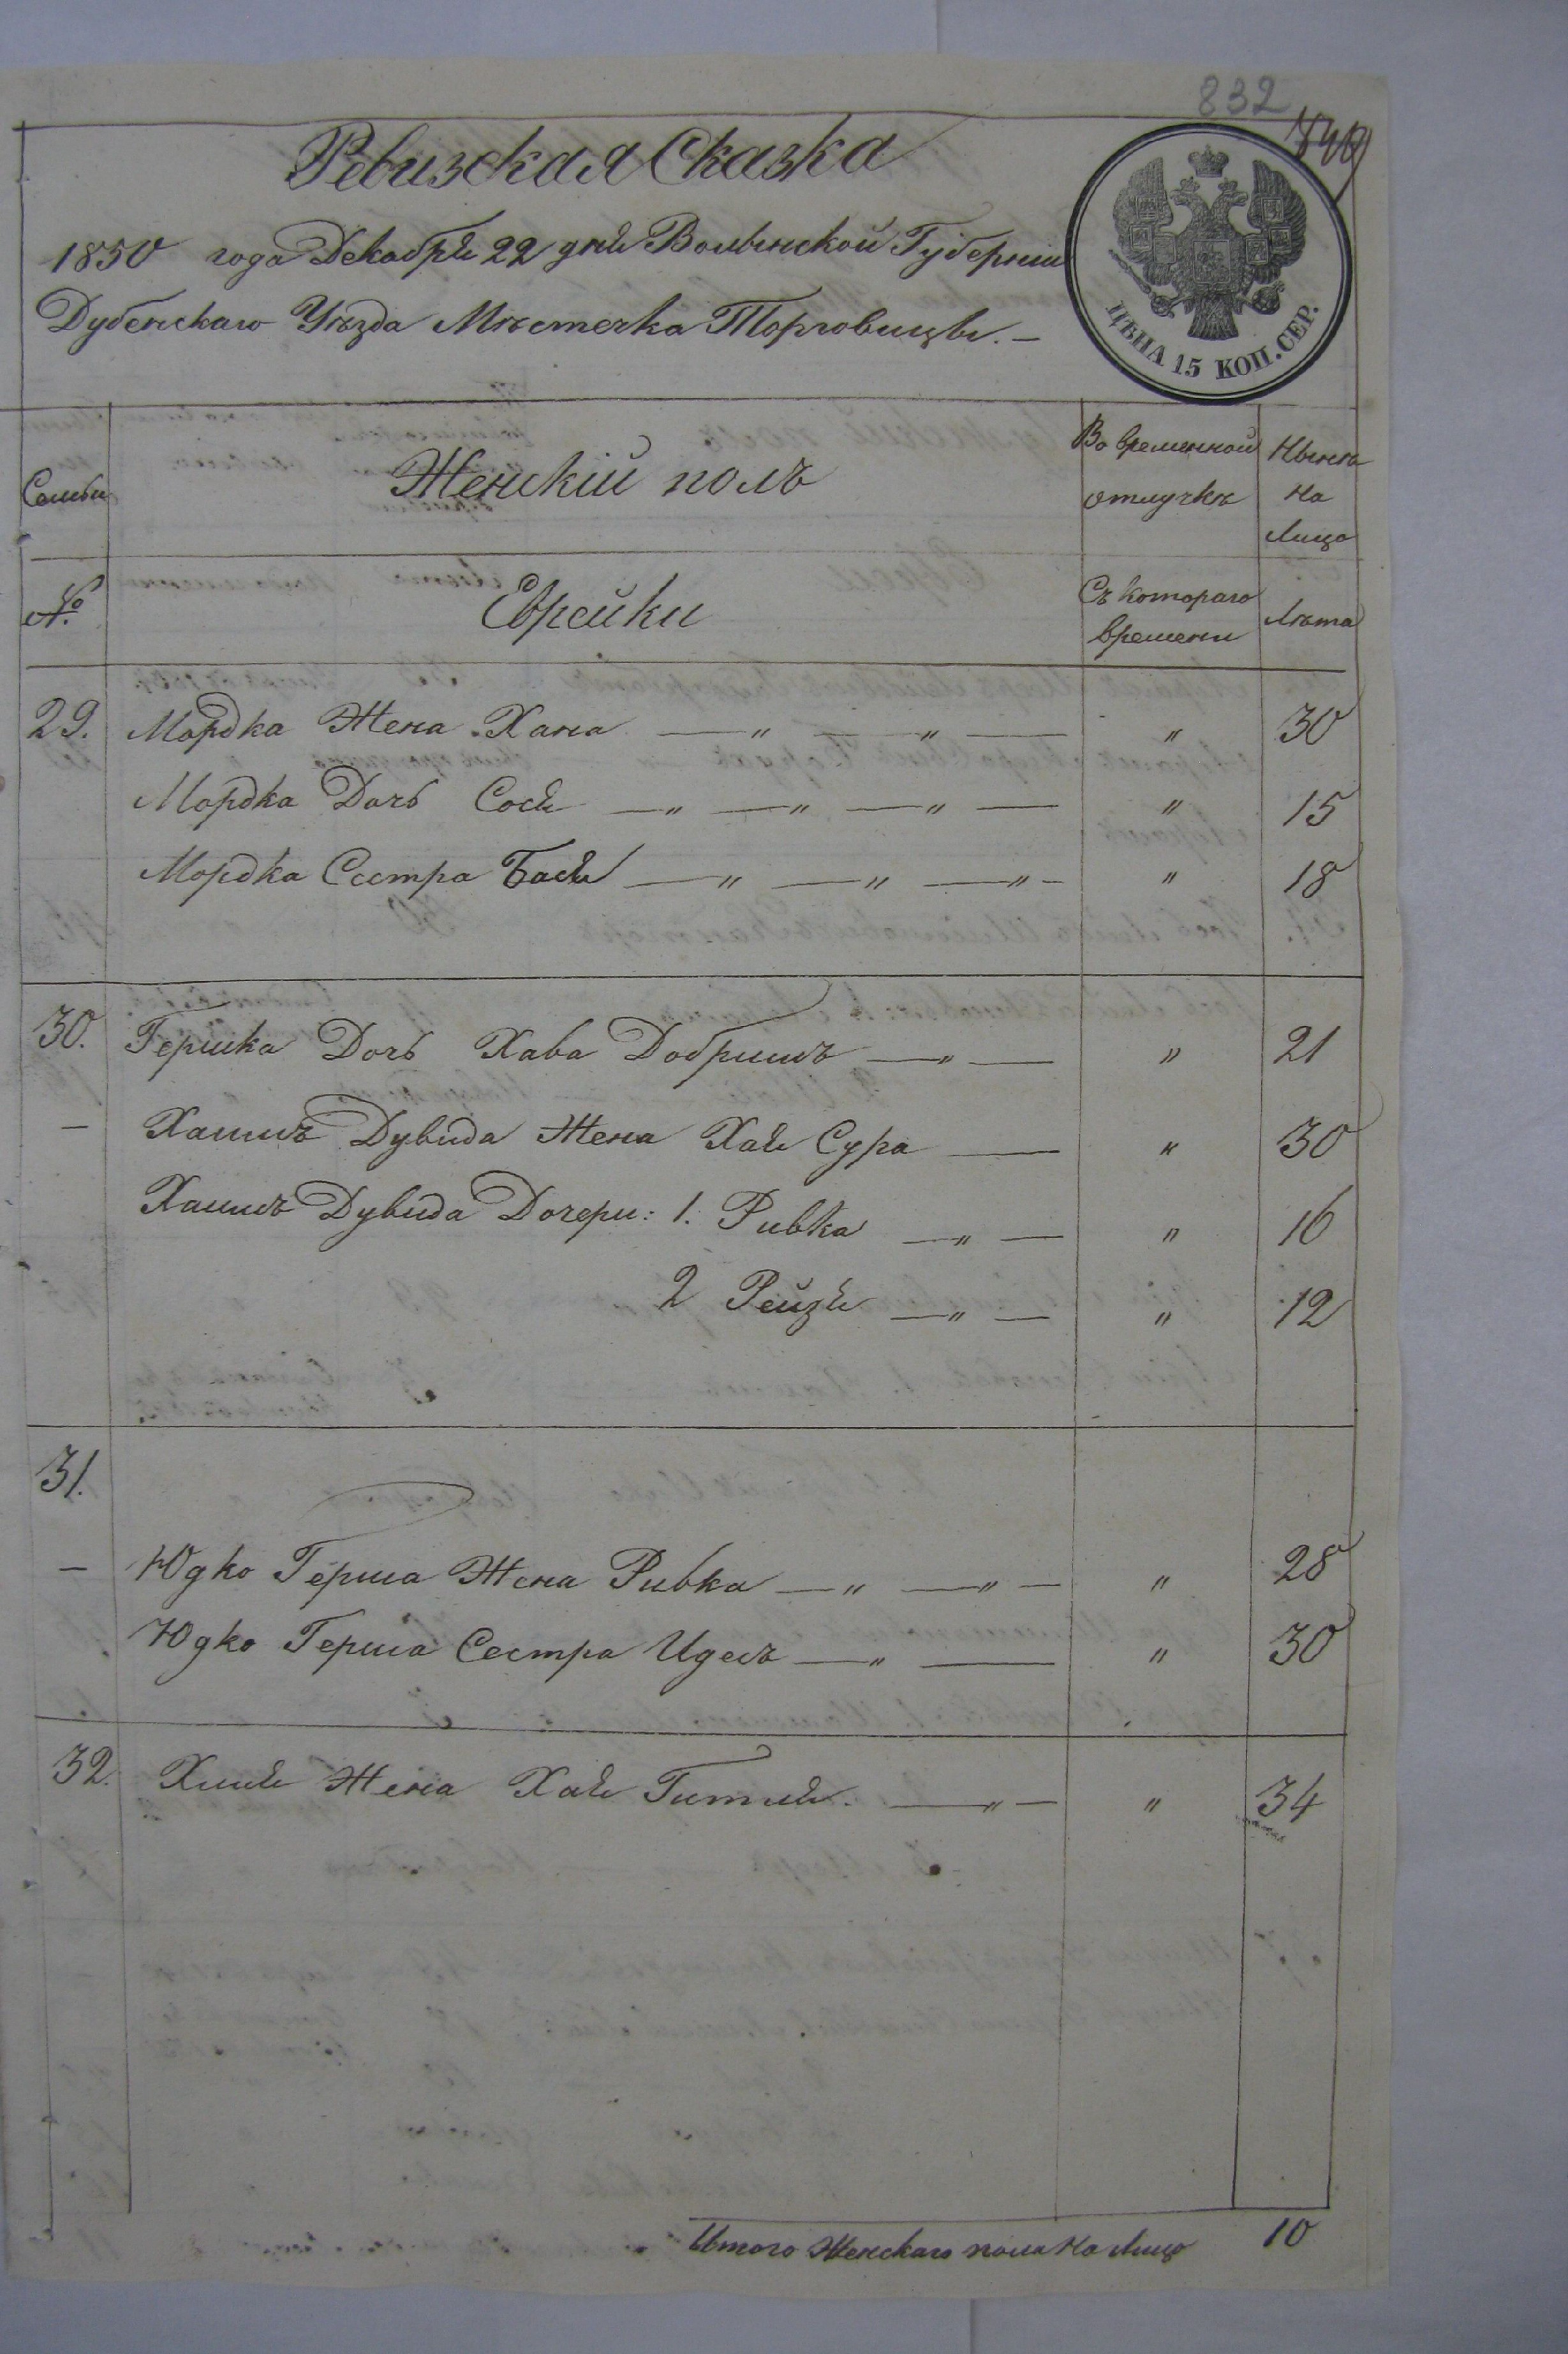 832
Ревизская Сказка
1850 года Декабря 22 дня Волынской Губернии
Дубенскаго Уѣзда Мѣстечка Торговицы. —
ЦѢНА 15 КОП. СЕР.
Семьи | Женскій полъ | Во временной отлучкѣ | Нынѣ на Лицо
№ | Еврейки | Съ котораго времени | Лѣта
29. Мордка Жена Хана — „ — „ — „ 30
Мордка Дочь Сося — „ — „ — „ — „ 15
Мордка Сестра Бася — „ — „ — „ — „ 18
30. Гершка Дочь Хава Добришъ — „ — „ 21
— Хаимъ Дувида Жена Хая Сура — „ 30
Хаимъ Дувида Дочери: 1. Ривка — „ — „ 16
2 Рейзя — „ — „ 12
31.
— Юдко Герша Жена Ривка — „ — „ — „ 28
Юдко Герша Сестра Идесъ — „ — „ 30
32. Жена Хая Гитля. — „ — „ 34
Итого Женскаго пола на Лицо 10